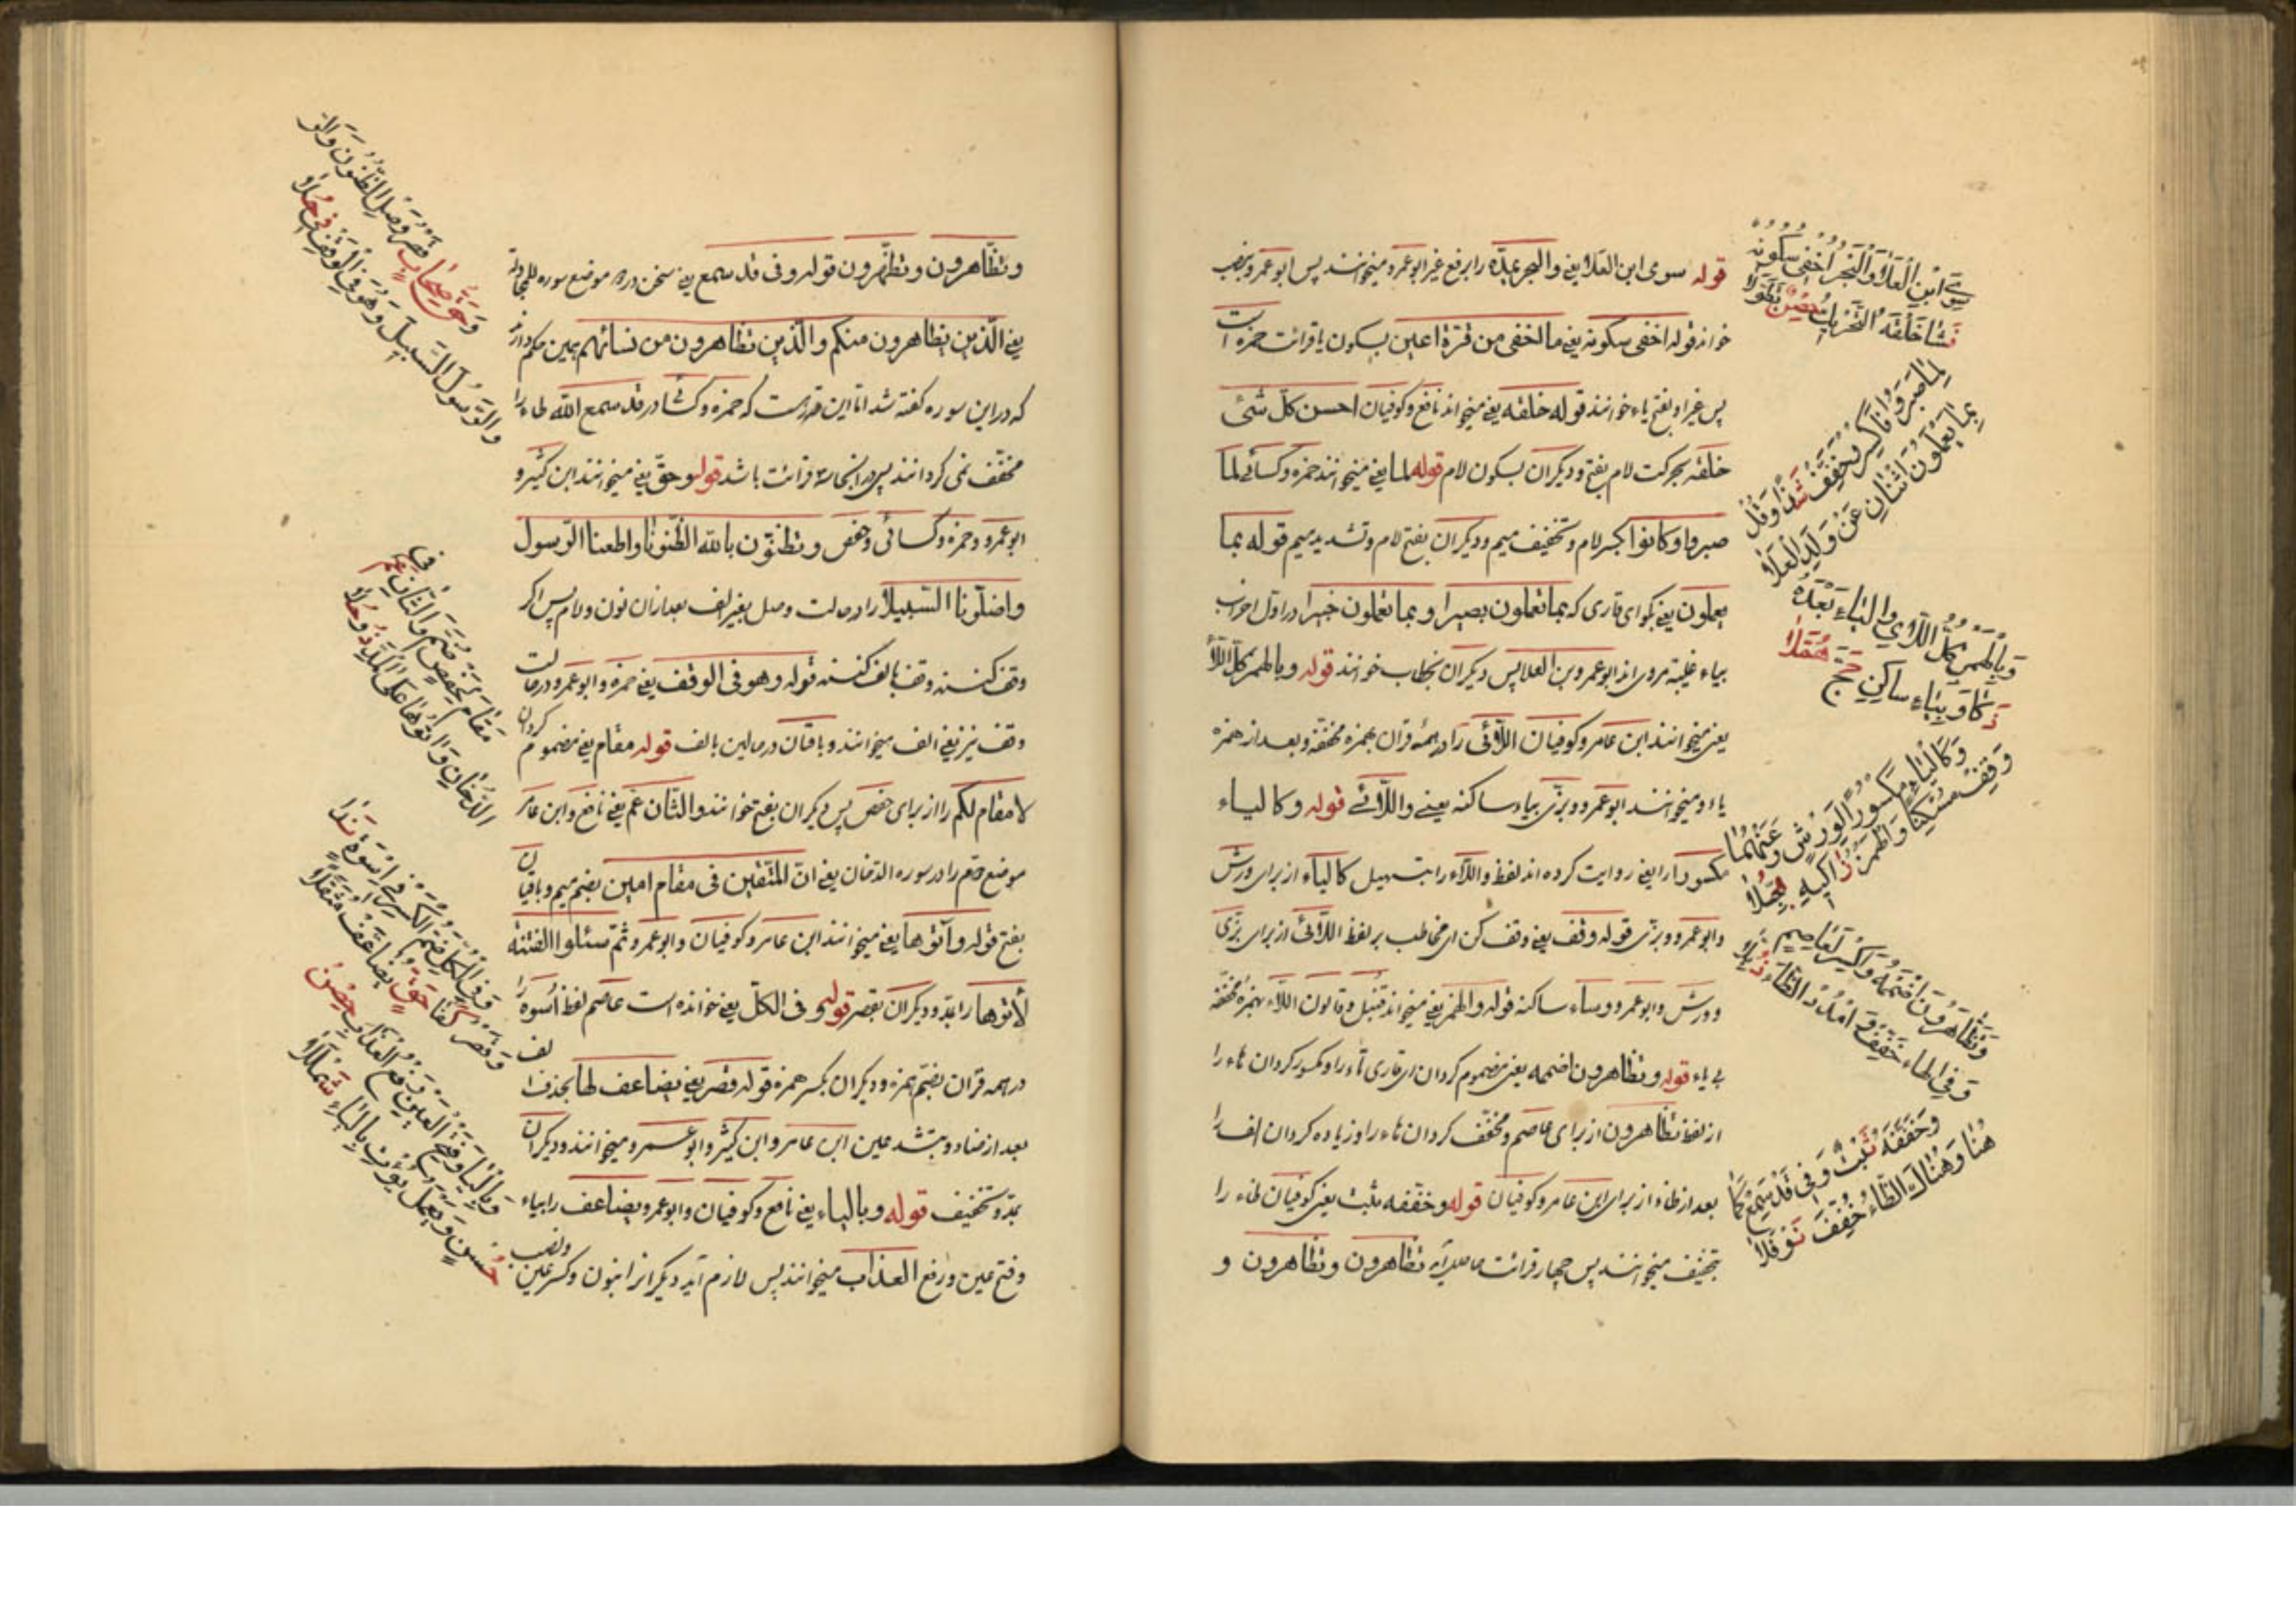 قوله سوى ابن العلا یعنی والبحر یمدّه را برفع غیر ابوعمرو میخوانند پس ابوعمرو بنصب
خواند قوله اخفی سکونه یعنی ما اخفی من قرة اعین بسکون یا قرائت حمزه است
پس غیر او بفتح یاء خوانند قوله خلقه یعنی میخواند نافع و کوفیان احسن کلّ شئ
خلقه بحرکت لام بفتح و دیکران بسکون لام قوله لما یعنی میخوانند حمزه و کسائی لما
صبروا وکانوا بکسر لام و تخفیف میم و دیکران بفتح لام و تشدید میم قوله بما
یعملون یعنی بکو ای قاری که بما تعملون بصیرا و بما تعملون خبیرا در اول احزاب
بیاء غیبة مروی از ابوعمرو بن العلا پس دیکران بخطاب خوانند قوله وبالهمز کلّ اللاّئ
یعنی میخوانند ابن عامر و کوفیان اللاّئی را در همه قرآن بهمزه محققه و بعد از همزه
یاء و میخوانند ابوعمرو و بزّی بیاء ساکنه یعنی واللاّئے قوله وکالیاء
مکسورا را یعنی روایت کرده اند لفظ واللاّء را بتسهیل کالیاء از برای ورش
و ابوعمرو و بزی قوله وقف یعنی وقف کن ای مخاطب بر لفظ اللاّئی از برای بزّی
و ورش و ابوعمرو و بیاء ساکنه قوله والهمز یعنی میخواند قنبل و قالون اللاّء بهمزه محققه
بی یاء قوله وتظاهرون اضممه یعنی مضموم کردان ای قاری تاء را و مکسور کردان هاء را
از لفظ تظاهرون از برای عاصم و مخفّف کردان هاء را و زیاده کردان الف را
بعد از ظاء از برای ابن عامر و کوفیان قوله وخفّفه ثبت یعنی کوفیان ظاء را
بتخفیف میخوانند پس چهار قرائت حاصل آید تظاهرون وتظّاهرون و
سِوَى ابْنِ الْعَلَا وَالْبَحْرُ اُخْفِي سُكُونُهُ
فَشَا خَلْقَهُ التَّحْرِيكُ حِصْنٌ تَطَوَّلَا
لِمَا صَبَرُوا فَاكْسِرْ وَخَفِّفْ شَذًا وَقُلْ
بِمَا يَعْمَلُونَ اثْنَانِ عَنْ وَلَدِ الْعَلَا
وَبِالْهَمْزِ كُلُّ اللَّائِ وَالْيَاءُ بَعْدَهُ
ذَكَا وَبِيَاءٍ سَاكِنٍ حَجَّ هُمَّلَا
وَكَالْيَاءِ مَكْسُورًا لِوَرْشٍ وَعَنْهُمَا
وَقِفْ مُسْكِنًا وَالْهَمْزُ زَاكِيهِ بُجِّلَا
وَتَظَّاهَرُونَ اضْمُمْهُ وَاكْسِرْ لِعَاصِمٍ
وَفِي الْهَاءِ خَفِّفْ وَامْدُدِ الظَّاءَ ذُبَّلَا
وَخَفَّفَهُ ثَبْتٌ وَفِي قَدْ سَمِعَ كَمَا
هُنَا وَهُنَاكَ الظَّاءُ خُفِّفَ نَوْفَلَا
وتظّاهرون وتظّهّرون قوله وفی قد سمع یعنی سخن در هر موضع سوره المجادلة
یعنی الّذین یظاهرون منکم والّذین یظاهرون من نسائهم همین حکم دارند
که در این سوره کفته شد امّا این قدر هست که حمزه و کسائی در قد سمع الله ظاء را
مخفّف نمی کردانند پس در انجا سه قرائت باشد قوله وحقّ یعنی میخوانند ابن کثیر و
ابوعمرو و حمزه و کسائی و حفص وتظنّون بالله الظّنونا واطعنا الرّسول
واضلّونا السّبیلا را در حالت وصل بغیر الف بعد از ان نون و لام پس اکر
وقف کنند وقف بالف کنند قوله وهو فی الوقف یعنی حمزه و ابوعمرو در حالت
وقف نیز بی الف میخوانند و باقیان در حالین بالف قوله مقام یعنی مضموم کردان
لا مقام لکم را از برای حفص پس دیکران بفتح خوانند والثّان عمّ یعنی نافع و ابن عامر
موضع دوّم را در سوره الدّخان یعنی انّ المتّقین فی مقام امین بضم میم و باقیان
بفتح قوله وآتوها یعنی میخوانند ابن عامر و کوفیان و ابوعمرو ثمّ سئلوا الفتنة
لأتوها را بمدّ و دیکران بقصر قوله وفی الکلّ یعنی خوانده است عاصم لفظ اسوة را
در همه قرآن بضمّ همزه و دیکران بکسر همزه قوله وقصر یعنی یضاعف لها بحذف الف
بعد از ضاد و بتشدید عین ابن عامر و ابن کثیر و ابوعمرو میخوانند و دیکران
بمدّ و تخفیف قوله وبالیاء یعنی نافع و کوفیان و ابوعمرو یضاعف را بیاء
و فتح عین و رفع العذاب میخوانند پس لازم آید دیکرانرا بنون و کسر عین و نصب
وَحَقُّ صِحَابٍ قَصْرُ وَصْلِ الظُّنُونِ وَالرَّ
وَالرَّسُولَ السَّبِيلَ وَهْوَ فِي الْوَقْفِ فِي حُلَا
مَقَامَ لِحَفْصٍ ضُمَّ وَالثَّانِ عَمَّ فِي
الدُّخَانِ وَآتَوْهَا عَلَى الْمَدِّ ذُو حُلَا
وَفِي الْكُلِّ ضَمُّ الْكَسْرِ فِي اُسْوَةٌ نَدَا
وَقَصْرُ كَفَا حَقٍّ يُضَاعَفْ مُثَقَّلَا
وَبِالْيَا وَفَتْحِ الْعَيْنِ رَفْعُ الْعَذَابِ حِصْنُ
حُسْنٍ وَيَعْمَلْ يُؤْتِ بِالْيَاءِ شَمْلَلَا